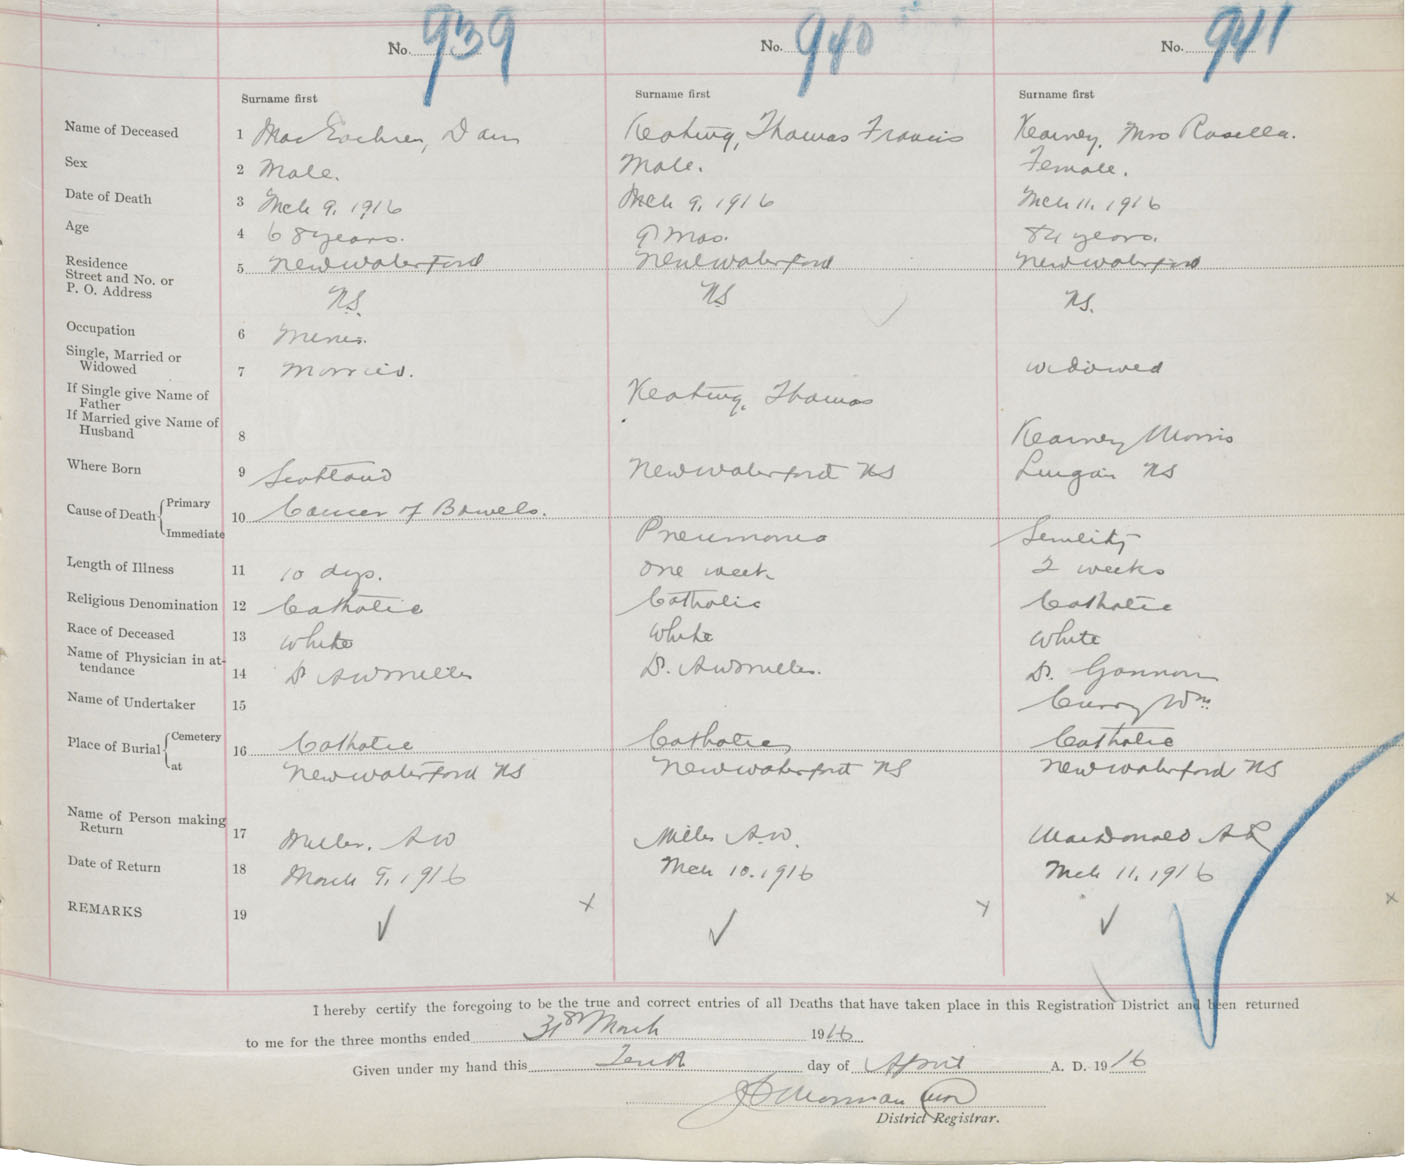 No. 939 No. 940 No. 941
Surname first Surname first Surname first
Name of Deceased 1 Mac Eachren, Dan Keating, Thomas Francis Kearney, Mrs Rosella.
Sex 2 Male. Male. Female.
Date of Death 3 Mch 9, 1916 Mch 9, 1916 Mch 11, 1916
Age 4 68 years. 9 mos. 84 years.
Residence
Street and No. or 5 New Waterford New Waterford New Waterford
P. O. Address NS. NS NS.
Occupation 6 Miner.
Single, Married or
Widowed 7 Married. widowed
If Single give Name of
Father Keating, Thomas
If Married give Name of
Husband 8 Kearney Morris
Where Born 9 Scotland New Waterford NS Lingan NS
Cause of Death Primary 10 Cancer of Bowels.
Immediate Pneumonia Senility
Length of Illness 11 10 dys. one week 2 weeks
Religious Denomination 12 Catholic Catholic Catholic
Race of Deceased 13 White White White
Name of Physician in at-
tendance 14 Dr AW Miller Dr. AW Miller. Dr. Gannon
Name of Undertaker 15 Curry Wm.
Place of Burial Cemetery 16 Catholic Catholic Catholic
at New Waterford NS New Waterford NS New Waterford NS
Name of Person making
Return 17 Miller, AW Miller A.W. MacDonald AR
Date of Return 18 March 9, 1916 Mch 10. 1916 Mch 11, 1916
REMARKS 19
I hereby certify the foregoing to be the true and correct entries of all Deaths that have taken place in this Registration District and been returned
to me for the three months ended 31st March 1916
Given under my hand this Tenth day of April A. D. 1916
District Registrar.